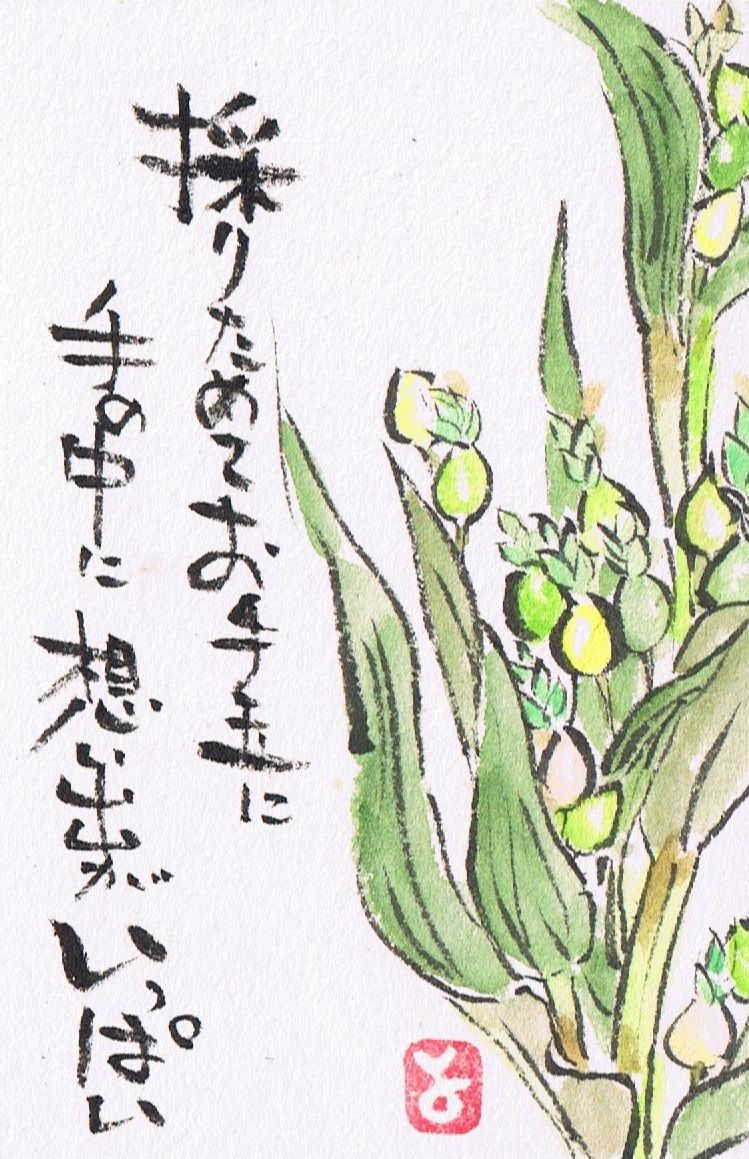 採りためてお手玉に
手の中に想い出がいっぱい